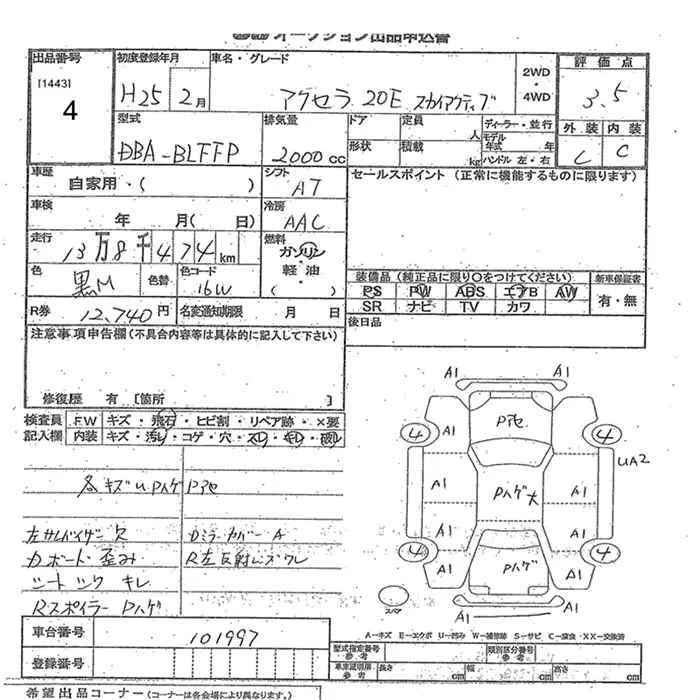 オークション出品申込書
出品番号
[1443]
4
初度登録年月
H25 2月
車名・グレード
アクセラ 20E スカイアクティブ
2WD
・
4WD
評価点
3.5
外装 内装
C C
型式
DBA-BLFFP
排気量
2000 cc
ドア
形状
定員 人
積載 kg
ディーラー・並行
モデル
年式 年
ハンドル 左・右
車歴
自家用・( )
シフト
AT
セールスポイント (正常に機能するものに限ります)
車検
年 月( 日)
冷房
AAC
走行
13万8千474km
燃料
ガソリン
・
軽油
( )
色
黒M
色替
色コード
16W
装備品 (純正品に限り○をつけてください)
新車保証書
PS PW ABS エアB AW
有・無
SR ナビ TV カワ
R券 12,740円
名変通知期限 月 日
後日品
注意事項申告欄(不具合内容等は具体的に記入して下さい)
修復歴 有 [箇所 ]
検査員
記入欄
FW キズ・飛石・ヒビ割・リペア跡・×要
内装 キズ・汚レ・コゲ・穴・スレ・キレ・破レ
各キズU Pハゲ Pアセ
左サンバイザー欠
Dミラーカバー A
カボード歪み
R左反射レンズワレ
シートシワ キレ
Rスポイラー Pハゲ
A1
A1
Pアセ
4
A1
A1
4
UA2
Pハゲ大
A1
A1
A1
A1
4
Pハゲ
4
A1
A1
スペア
A1
A1
A―キズ E―エクボ U―凹み W―補修跡 S―サビ C―腐食 XX―交換済
車台番号
101997
登録番号
型式指定番号
参考
類別区分番号
参考
車車証明用
参考
長さ cm
幅 cm
高さ cm
希望出品コーナー (コーナーは各会場により異なります。)